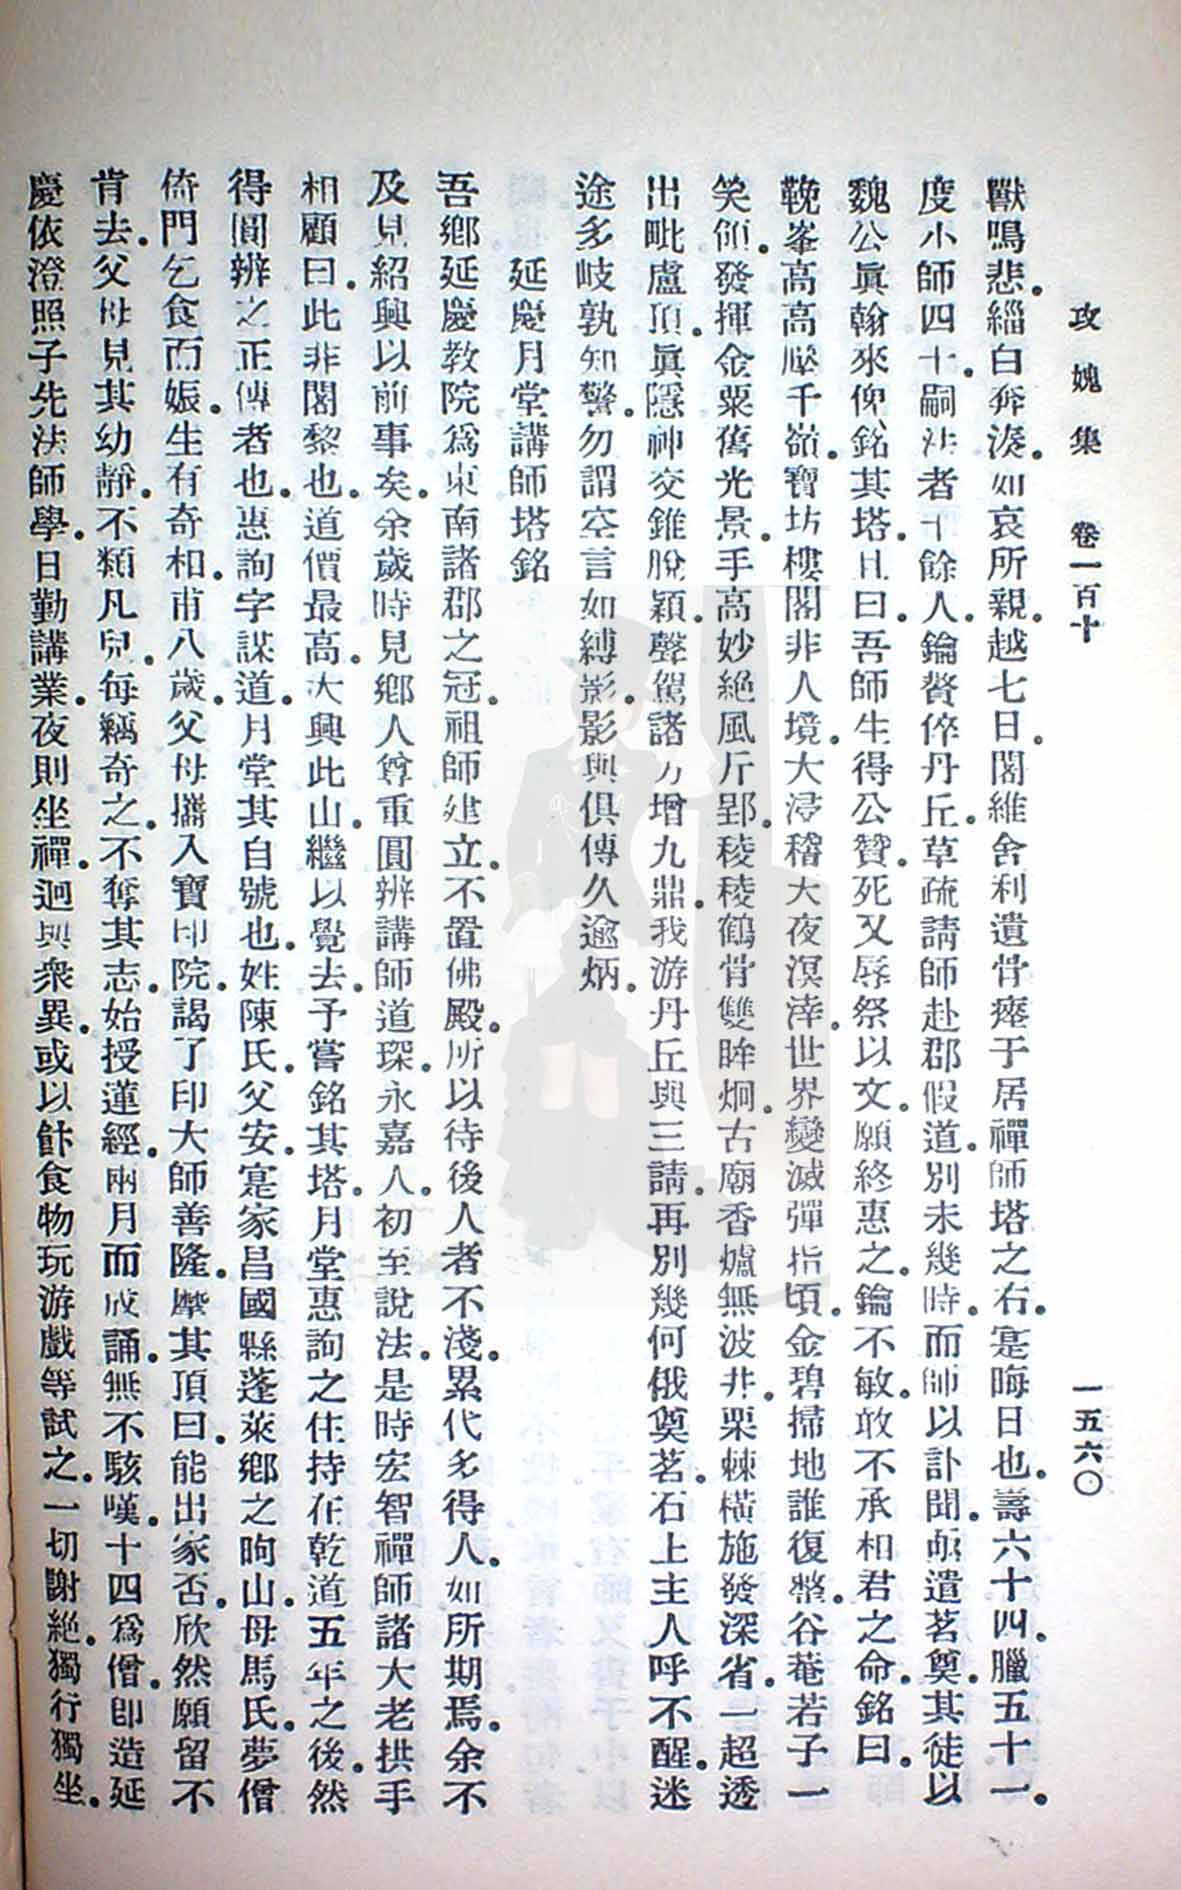 攻媿集　卷一百十　一五六〇
獸鳴悲。緇白奔湊。如哀所親。越七日。闍維舍利遺骨瘞于居禪師塔之右。寔晦日也。壽六十四。臘五十一。
度小師四十。嗣法者十餘人。鑰贅倅丹丘。草疏請師赴郡。假道。別未幾時。而師以訃聞。亟遣茗奠。其徒以
魏公眞翰來俾銘其塔。且曰。吾師生得公贊。死又辱祭以文。願終惠之。鑰不敏。敢不承相君之命。銘曰。
鞔峯高高壓千嶺。寶坊樓閣非人境。大浸稽大夜溟涬。世界變滅彈指頃。金碧掃地誰復整。谷菴若子一
笑領。發揮金粟舊光景。手高妙絕風斤郢。稜稜鶴骨雙眸烱。古廟香爐無波井。栗棘橫施發深省。一超透
出毗盧頂。眞隱神交錐脫穎。聲駕諸方增九鼎。我游丹丘與三請。再別幾何俄奠茗。石上主人呼不醒。迷
途多岐孰知警。勿謂空言如縛影。影與俱傳久逾炳。
延慶月堂講師塔銘
吾鄉延慶教院爲東南諸郡之冠。祖師建立。不置佛殿。所以待後人者不淺。累代多得人。如所期焉。余不
及見紹興以前事矣。余歲時見鄉人尊重圓辨講師道琛。永嘉人。初至說法。是時宏智禪師諸大老拱手
相顧曰。此非闍黎也。道價最高。大興此山。繼以覺去。予嘗銘其塔。月堂惠詢之住持在乾道五年之後。然
得圓辨之正傳者也。惠詢字謀道。月堂其自號也。姓陳氏。父安。寔家昌國縣蓬萊鄉之岣山。母馬氏。夢僧
倚門乞食而娠。生有奇相。甫八歲。父母攜入寶印院。謁了印大師善隆。摩其頂曰。能出家否。欣然願留不
肯去。父母見其幼靜。不類凡兒。每竊奇之。不奪其志。始授蓮經。兩月而成誦。無不駭嘆。十四爲僧。卽造延
慶依澄照子先法師學。日勤講業。夜則坐禪。迥與衆異。或以飲食物玩游戲等試之。一切謝絕。獨行獨坐。